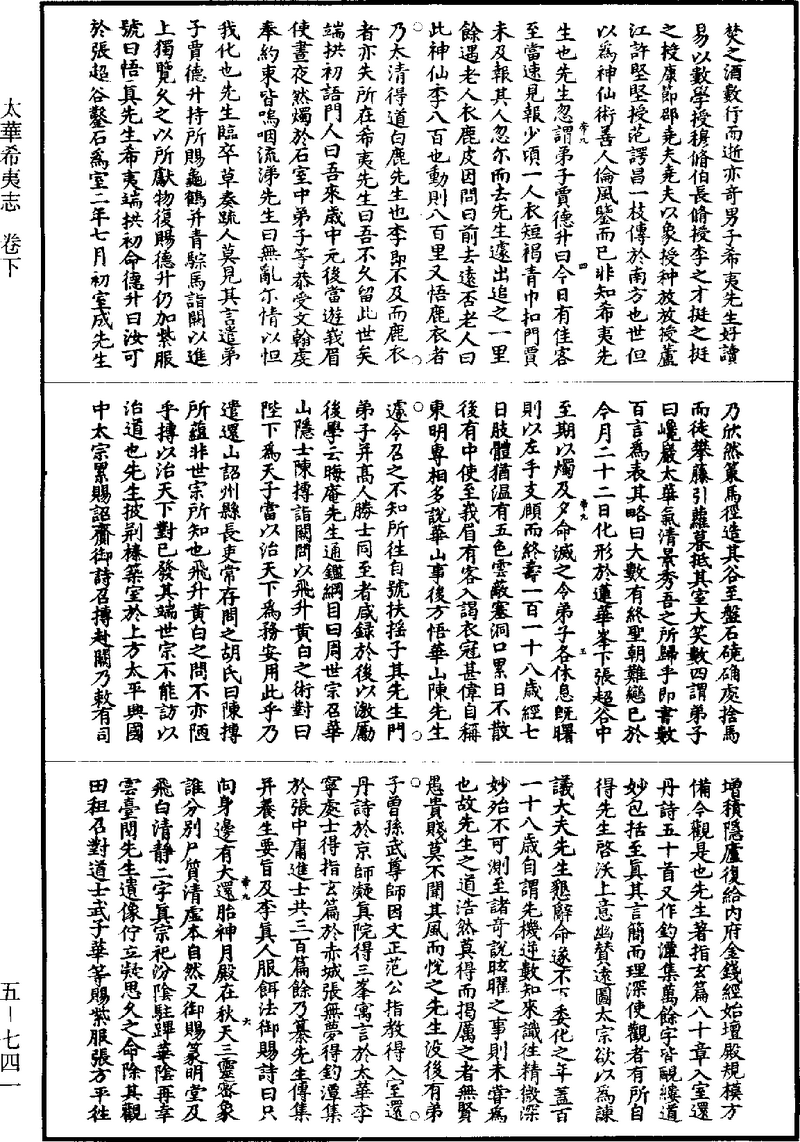 太華希夷志 卷下
五—七四一
焚之酒數行而逝亦奇男子希夷先生好讀
易以數學授穆脩伯長脩授李之才挺之挺
之授康節邵堯夫堯夫以象授种放放授廬
江許堅堅授范諤昌一枝傳於南方也世但
以為神仙術善人倫風鑒而已非知希夷先
生也先生忽謂弟子賈德升曰今日有佳客
至當速見報少頃一人衣短褐青巾扣門賈
未及報其人忽尔而去先生遽出追之一里
餘遇老人衣鹿皮因問曰前去遠否老人曰
此神仙李八百也動則八百里又悟鹿衣者
乃太清得道白鹿先生也李即不及而鹿衣
者亦失所在希夷先生曰吾不久留此世矣
端拱初語門人曰吾來歲中元後當遊峩眉
使晝夜然燭於石室中弟子等恭受文翰虔
奉約束皆嗚咽流涕先生曰無亂尔情以怛
我化也先生臨卒草奏疏人莫見其言遣弟
子賈德升持所賜龜鶴并青騌馬詣闕以進
上獨覽久之以所獻物復賜德升仍加紫服
號曰悟真先生希夷端拱初命德升曰汝可
於張超谷鑿石為室二年七月初室成先生
乃欣然策馬徑造其谷至盤石磽确處捨馬
而徒攀藤引蘿暮抵其室大笑數四謂弟子
曰巉巖太華氣清景秀吾之所歸乎即書數
百言為表其略曰大數有終聖朝難戀已於
今月二十二日化形於蓮華峯下張超谷中
至期以燭及夕命滅之令弟子各休息既曙
則以左手支頤而終壽一百一十八歲經七
日肢體猶温有五色雲蔽塞洞口累日不散
後有中使至峩眉有客入謁衣冠甚偉自稱
東明專相多說華山事後方悟華山陳先生
遽令召之不知所往自號扶揺子其先生門
弟子并髙人勝士同至者咸録於後以激勵
後學云晦庵先生通鑑綱目曰周世宗召華
山隱士陳摶詣闕問以飛升黄白之術對曰
陛下為天子當以治天下為務安用此乎乃
遣還山詔州縣長吏常存問之胡氏曰陳摶
所蘊非世宗所知也飛升黄白之問不亦陋
乎摶以治天下對已發其端世宗不能訪以
治道也先生披荆榛築室於上方太平興國
中太宗累賜詔齎御詩召摶赴闕乃敕有司
增積隱廬復給内府金錢經始壇殿規模方
備今觀是也先生著指玄篇八十章入室還
丹詩五十首又作釣潭集萬餘字皆覼縷道
妙包括至真其言簡而理深使觀者有所自
得先生啓沃上意幽賛遠圖太宗欲以為諫
議大夫先生懇辭命遂不下委化之年蓋百
一十八歲自謂先機逆數知來識往精微深
妙殆不可測至諸奇說眩曜之事則未嘗為
也故先生之道浩然莫得而揭厲之者無賢
愚貴賤莫不聞其風而悅之先生没後有弟
子曾孫武尊師因文正范公指教得入室還
丹詩於京師凝真院得三峯寓言於太華李
寧處士得指玄篇於赤城張無夢得釣潭集
於張中庸進士共三百篇餘乃纂先生傳集
并養生要旨及李真人服餌法御賜詩曰只
向身邊有大還胎神月殿在秋天三靈密象
誰分別尸質清虛本自然又御賜篆明堂及
飛白清静二字真宗祀汾陰駐蹕華陰再幸
雲臺閲先生遺像佇立凝思久之命除其觀
田租召對道士武子華等賜紫服張方平往
希九
四
希九
五
希九
六